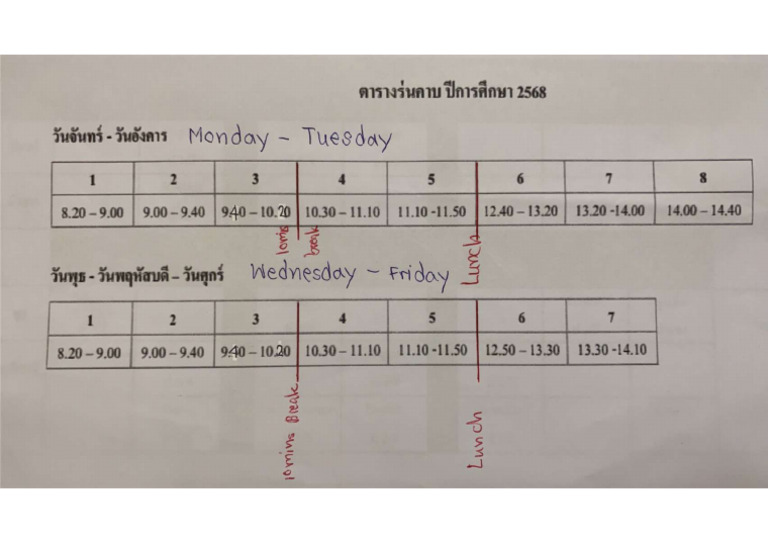 ตารางร่นคาบ ปีการศึกษา 2568
วันจันทร์ - วันอังคาร Monday - Tuesday
1 2 3 4 5 6 7 8
8.20 – 9.00 9.00 – 9.40 9.40 – 10.20 10.30 – 11.10 11.10 -11.50 12.40 – 13.20 13.20 -14.00 14.00 – 14.40
10mins break
Lunch
วันพุธ - วันพฤหัสบดี – วันศุกร์ Wednesday - Friday
1 2 3 4 5 6 7
8.20 – 9.00 9.00 – 9.40 9.40 – 10.20 10.30 – 11.10 11.10 -11.50 12.50 – 13.30 13.30 -14.10
10mins Break
Lunch